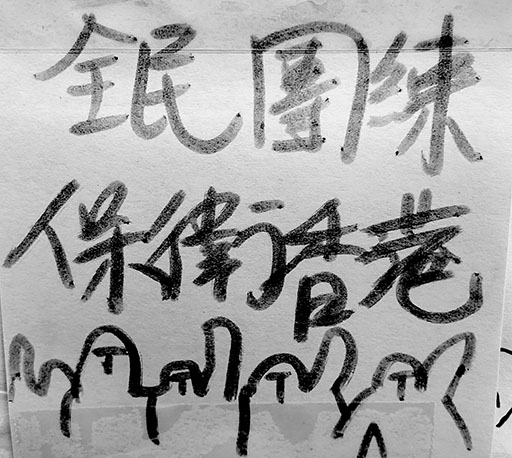 全民團練
保衛香港